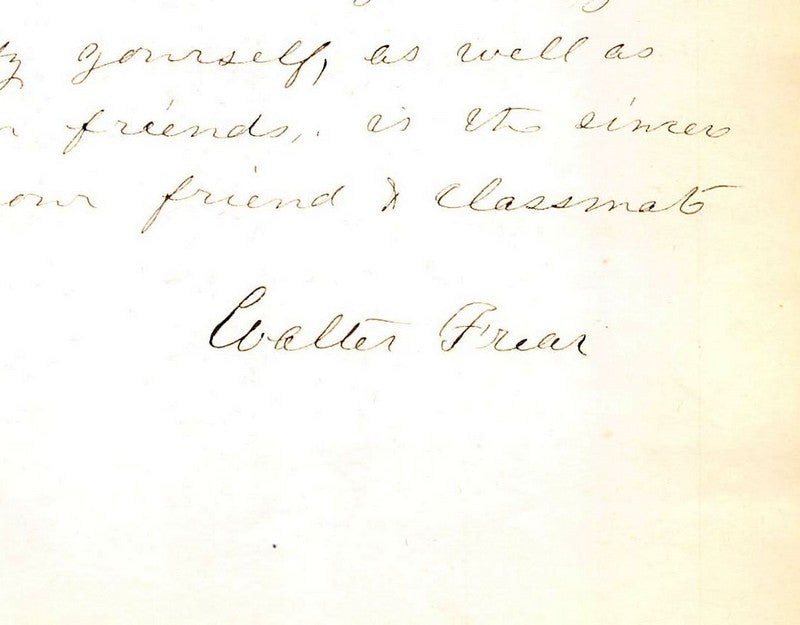 yourself, as well as
friends, is the sincere
friend & classmate
Walter Frear